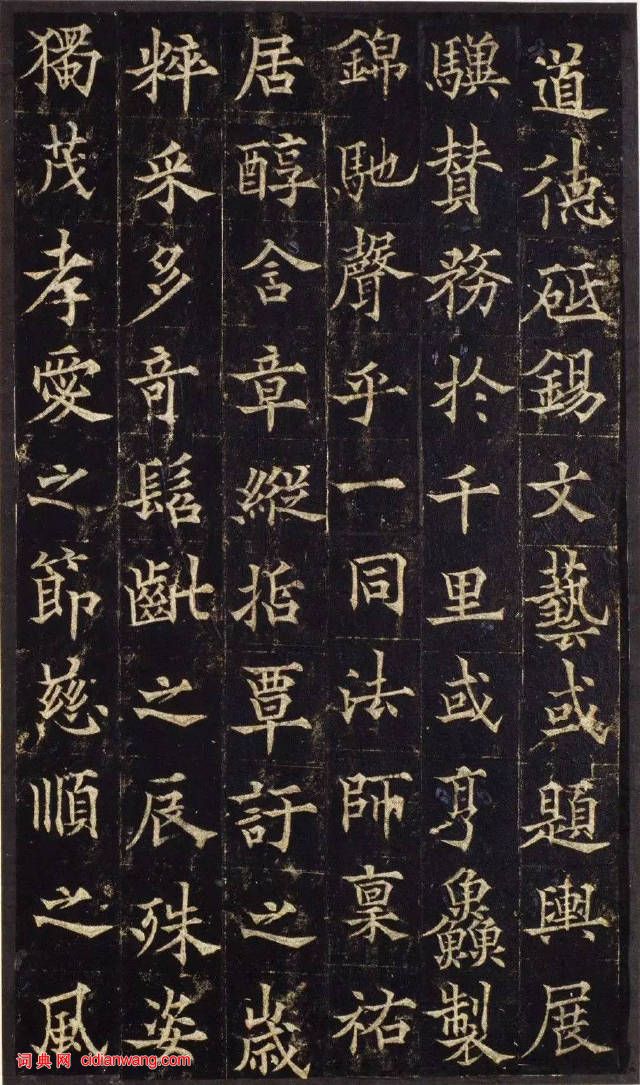 道德砥錫文藝或題輿展
驥賛務於千里或亨鱻製
錦馳聲乎一同法師稟祐
居醇含章縱哲覃訏之歲
粹采多竒髫齔之辰殊姿
獨茂孝愛之節慈順之風
词典网 cidianwang.com